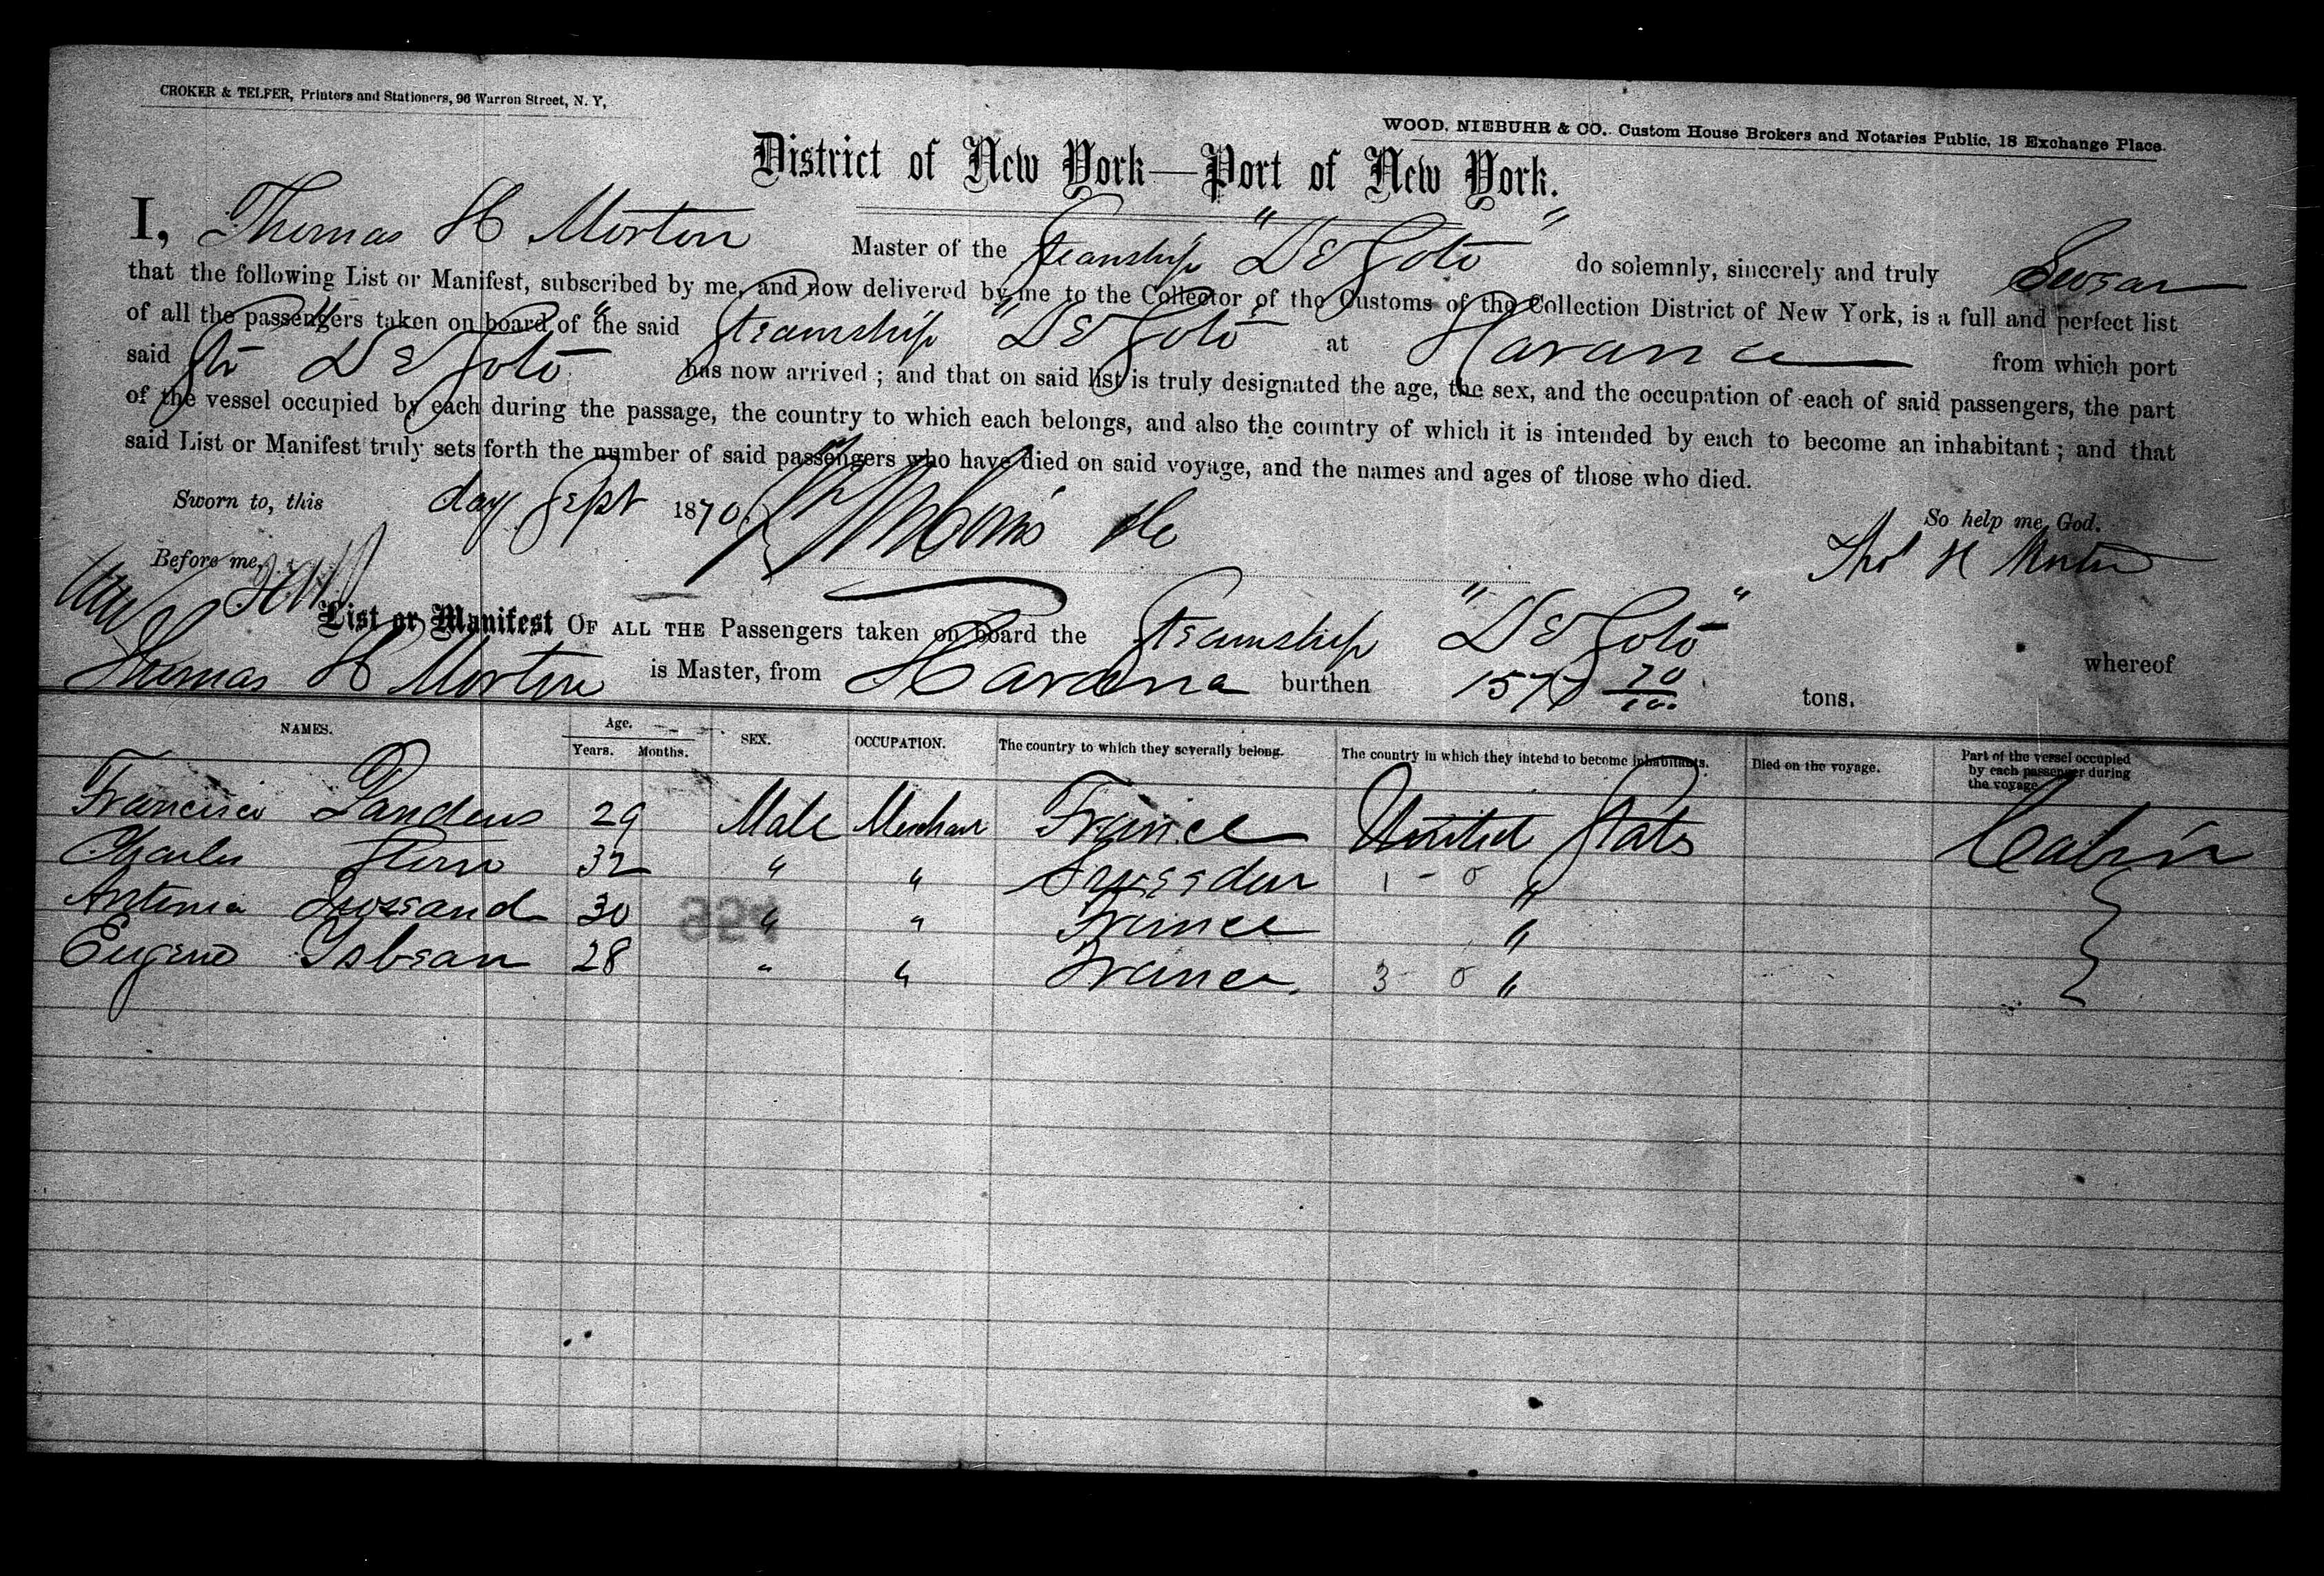 CROKER & TELFER, Printers and Stationers, 96 Warren Street, N. Y,
WOOD, NIEBUHR & CO. Custom House Brokers and Notaries Public, 18 Exchange Place.
District of New York—Port of New York.
I, Thomas H Morton Master of the Steamship "De Soto" do solemnly, sincerely and truly Swear
that the following List or Manifest, subscribed by me, and now delivered by me to the Collector of the Customs of the Collection District of New York, is a full and perfect list
of all the passengers taken on board of the said Steamship "De Soto" at Havana from which port
said Str "De Soto" has now arrived; and that on said list is truly designated the age, the sex, and the occupation of each of said passengers, the part
of the vessel occupied by each during the passage, the country to which each belongs, and also the country of which it is intended by each to become an inhabitant; and that
said List or Manifest truly sets forth the number of said passengers who have died on said voyage, and the names and ages of those who died.
Sworn to, this day Sept 1870 So help me God.
Before me, Thos H Morton
List or Manifest OF ALL THE Passengers taken on board the Steamship "De Soto" whereof
Thomas H Morton is Master, from Havana burthen tons.
NAMES. Age. Years. Months. SEX. OCCUPATION. The country to which they severally belong. The country in which they intend to become inhabitants. Died on the voyage. Part of the vessel occupied by each passenger during the voyage
Francisco 29 Male Merchant France United States Cabin
Charles Stern 32 " " "
Antonia 30 " " France "
Eugene 28 " " France. "